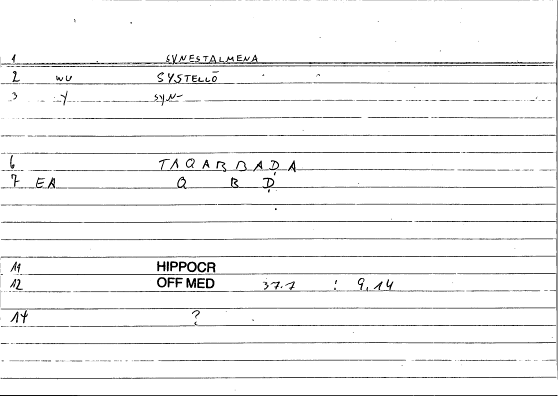 1 SYNESTALMENA
2 WU SYSTELLŌ
3 Y SYN-
6 TAQABBAḌA
7 EA Q B Ḍ
11 HIPPOCR
12 OFF MED 37.7 : 9,14
14 ?